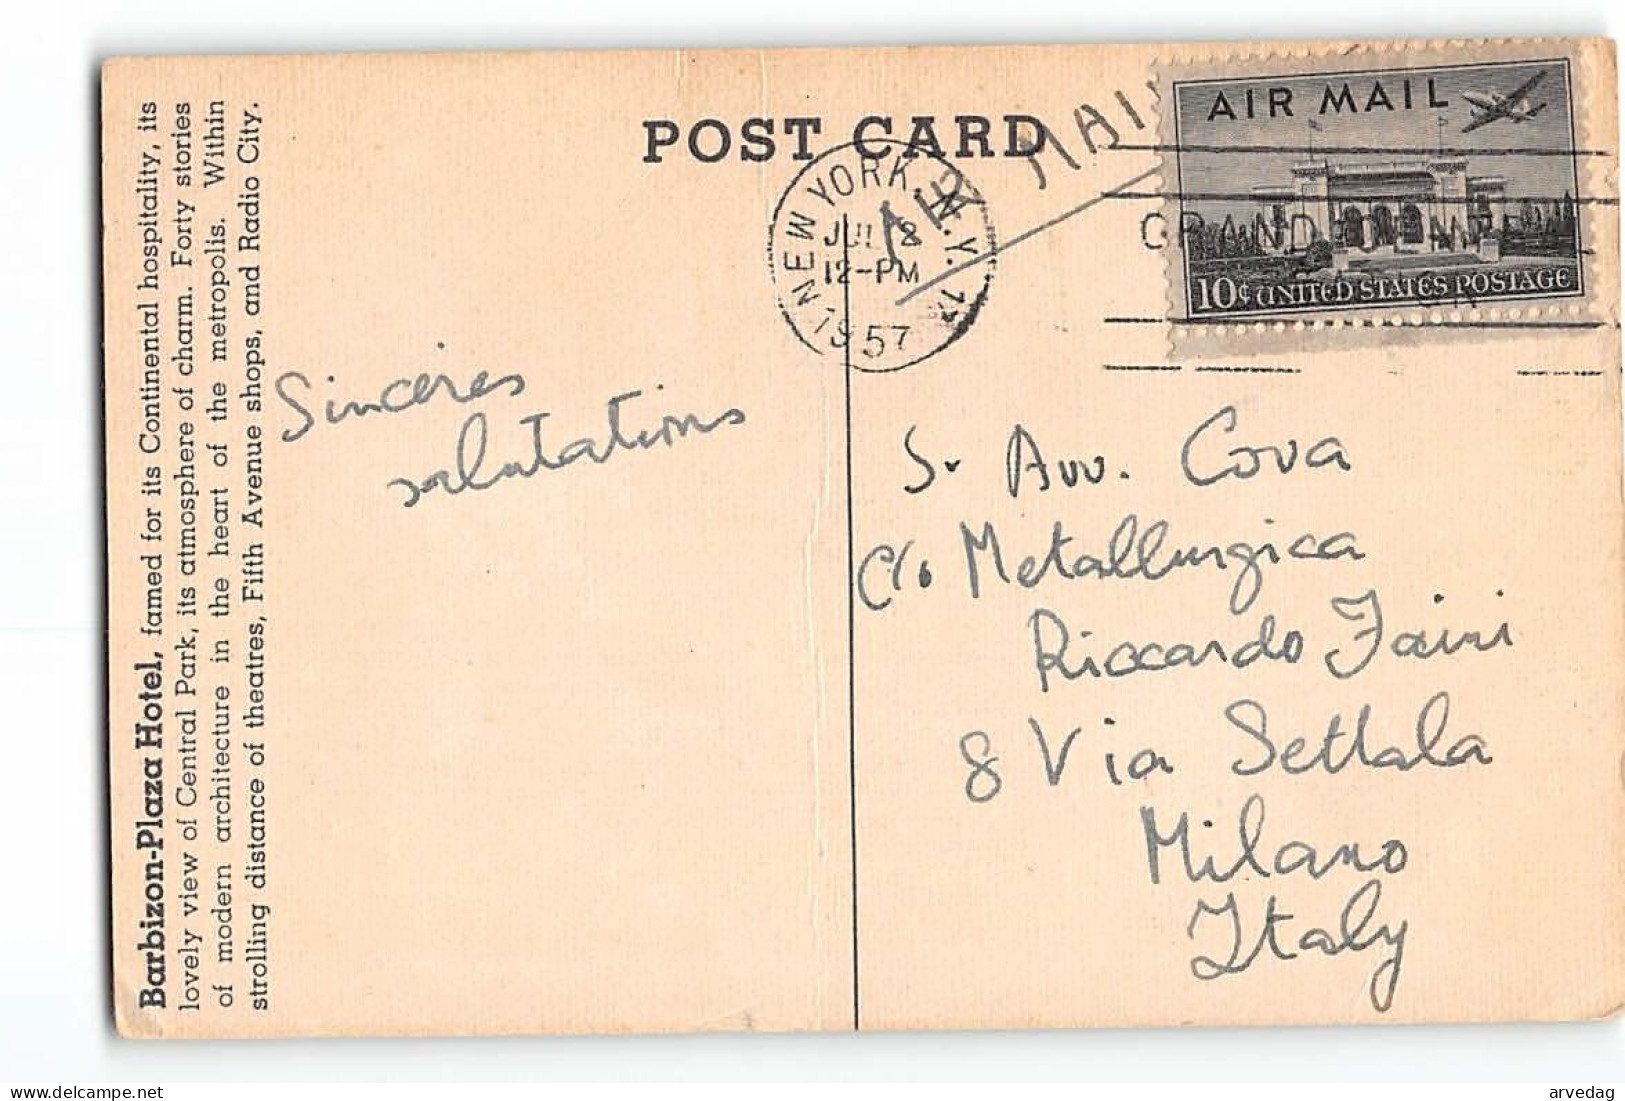 POST CARD
AIR MAIL
AIR MAIL
10¢ UNITED STATES POSTAGE
NEW YORK, N.Y.
JUL
12-PM
1957
GRAND CENTRAL
Barbizon-Plaza Hotel, famed for its Continental hospitality, its
lovely view of Central Park, its atmosphere of charm. Forty stories
of modern architecture in the heart of the metropolis. Within
strolling distance of theatres, Fifth Avenue shops, and Radio City.
Sinceres
salutations
S. Avv. Cova
c/o Metallurgica
Riccardo Faini
8 Via Settala
Milano
Italy
arvedag